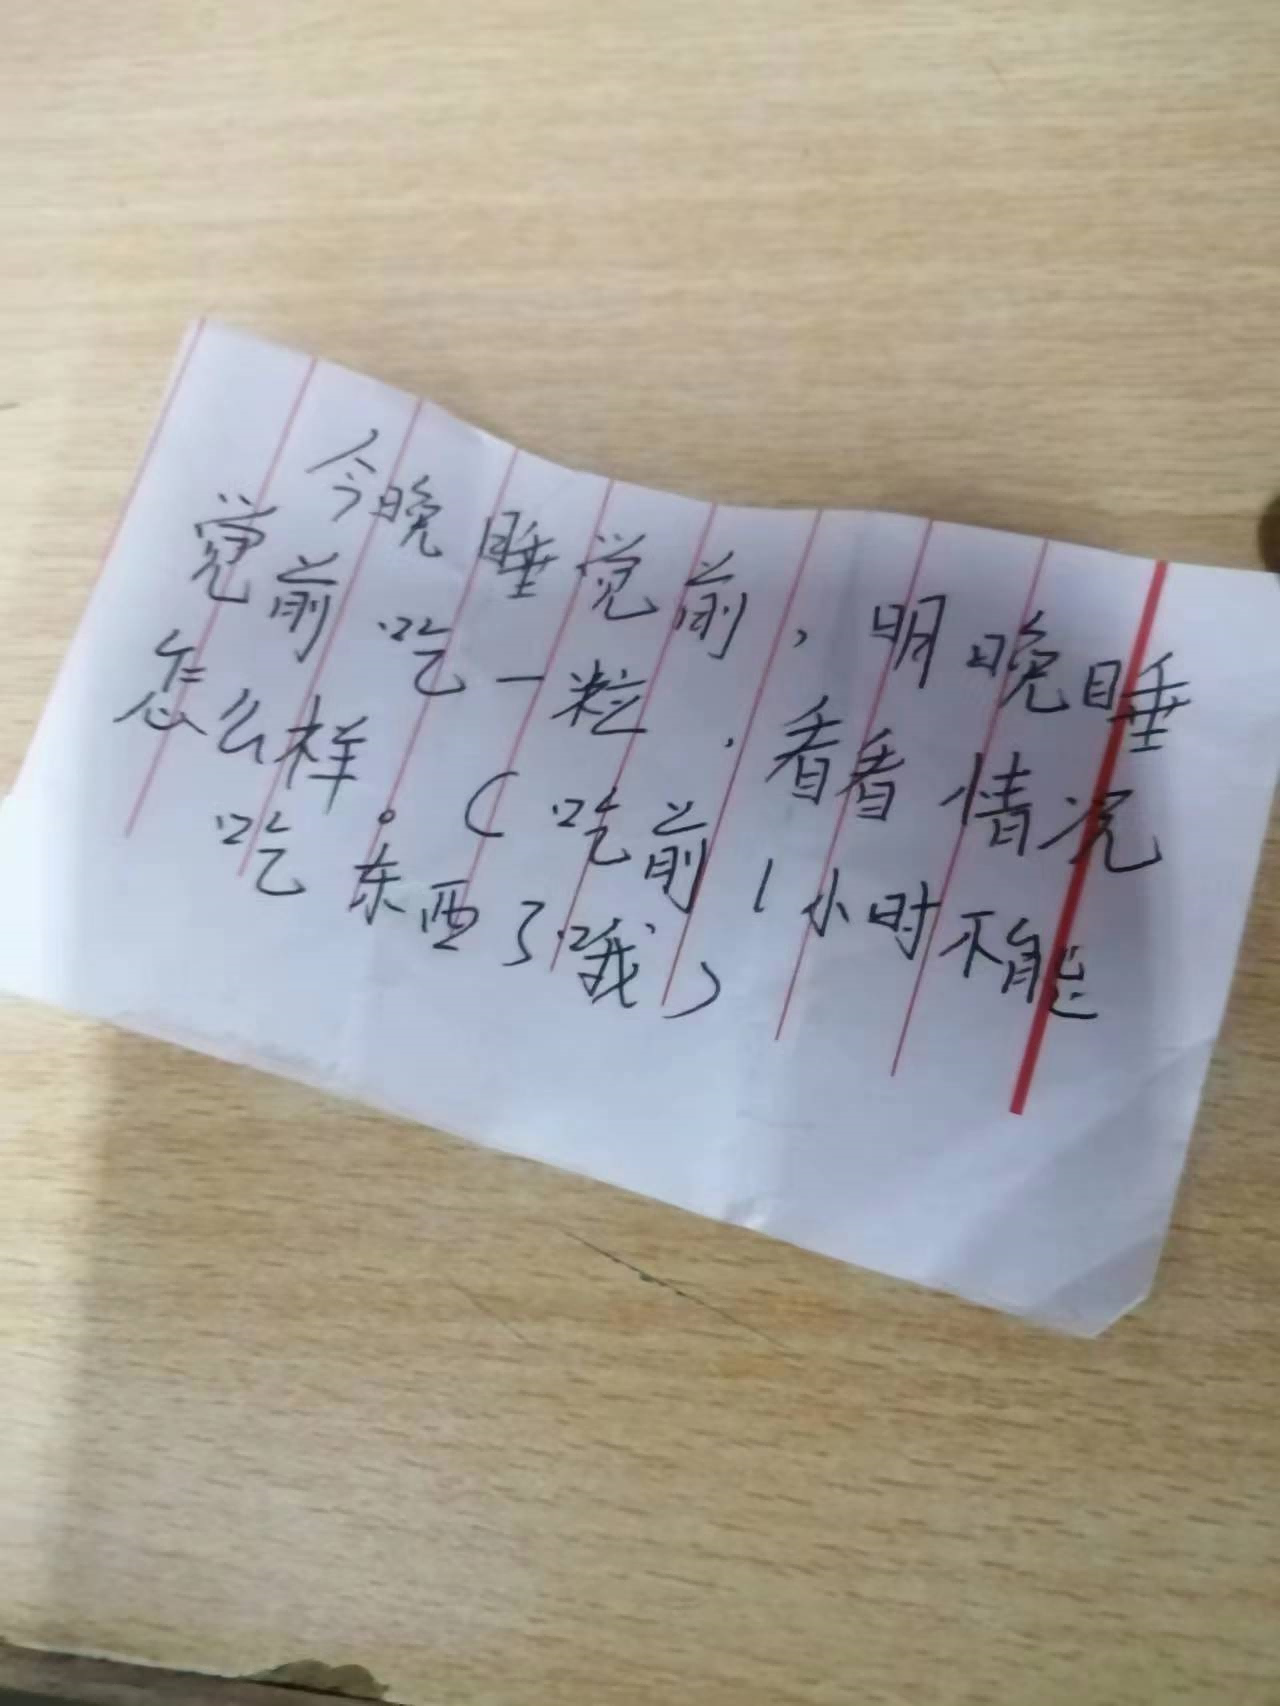 今晚睡觉前，明晚睡
觉前吃一粒，看看情况
怎么样。（吃前1小时不能
吃东西了哦）